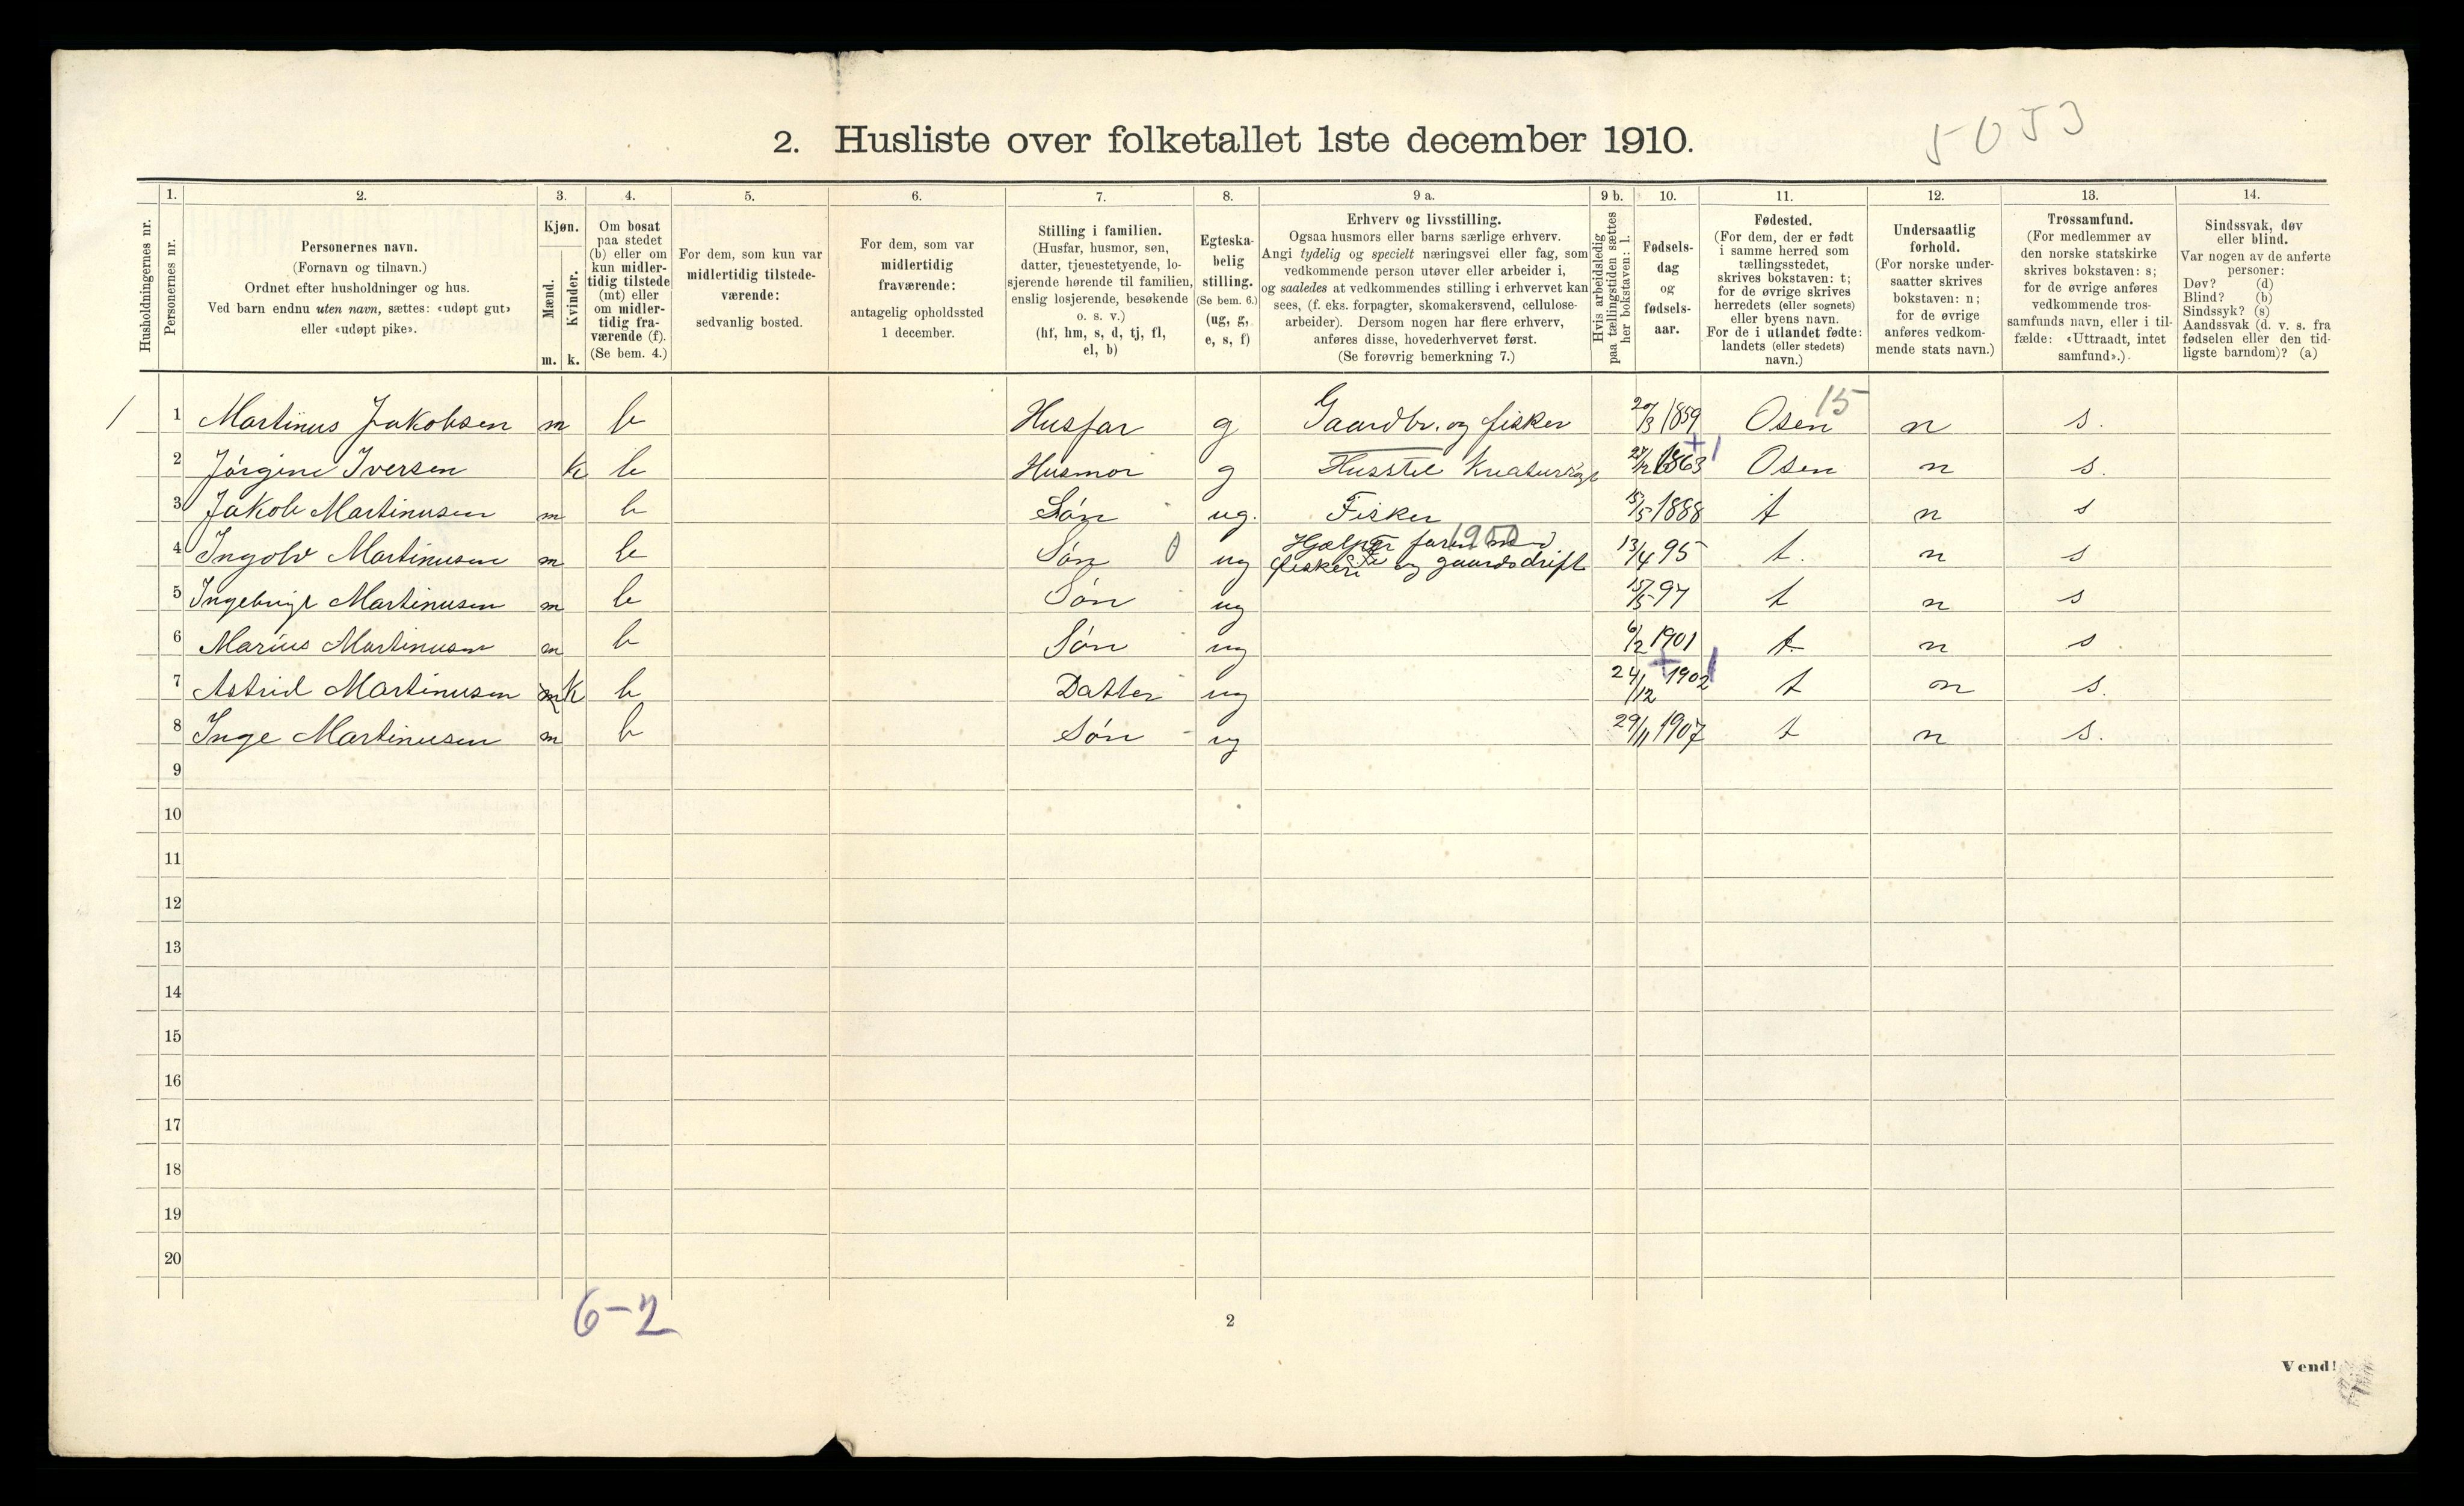 5053
2. Husliste over folketallet 1ste december 1910.
Husholdningernes nr.
1.
Personernes nr.
2.
Personernes navn.
(Fornavn og tilnavn.)
Ordnet efter husholdninger og hus.
Ved barn endnu uten navn, sættes: «udøpt gut»
eller «udøpt pike».
3.
Kjøn.
Mænd.
Kvinder.
m. k.
4.
Om bosat
paa stedet
(b) eller om
kun midler-
tidig tilstede
(mt) eller
om midler-
tidig fra-
værende (f).
(Se bem. 4.)
5.
For dem, som kun var
midlertidig tilstede-
værende:
sedvanlig bosted.
6.
For dem, som var
midlertidig
fraværende:
antagelig opholdssted
1 december.
7.
Stilling i familien.
(Husfar, husmor, søn,
datter, tjenestetyende, lo-
sjerende hørende til familien,
enslig losjerende, besøkende
o. s. v.)
(hf, hm, s, d, tj, fl,
el, b)
8.
Egteska-
belig
stilling.
(Se bem. 6.)
(ug, g,
e, s, f)
9 a.
Erhverv og livsstilling.
Ogsaa husmors eller barns særlige erhverv.
Angi tydelig og specielt næringsvei eller fag, som
vedkommende person utøver eller arbeider i,
og saaledes at vedkommendes stilling i erhvervet kan
sees, (f. eks. forpagter, skomakersvend, cellulose-
arbeider). Dersom nogen har flere erhverv,
anføres disse, hovederhvervet først.
(Se forøvrig bemerkning 7.)
9 b.
Hvis arbeidsledig
paa tællingstiden sættes
her bokstaven: l.
10.
Fødsels-
dag
og
fødsels-
aar.
11.
Fødested.
(For dem, der er født
i samme herred som
tællingsstedet,
skrives bokstaven: t;
for de øvrige skrives
herredets (eller sognets)
eller byens navn.
For de i utlandet fødte:
landets (eller stedets)
navn.)
12.
Undersaatlig
forhold.
(For norske under-
saatter skrives
bokstaven: n;
for de øvrige
anføres vedkom-
mende stats navn.)
13.
Trossamfund.
(For medlemmer av
den norske statskirke
skrives bokstaven: s;
for de øvrige anføres
vedkommende tros-
samfunds navn, eller i til-
fælde: «Uttraadt, intet
samfund».)
14.
Sindssvak, døv
eller blind.
Var nogen av de anførte
personer:
Døv? (d)
Blind? (b)
Sindssyk? (s)
Aandssvak (d. v. s. fra
fødselen eller den tid-
ligste barndom)? (a)
15
1 Martinus Jakobsen m b Husfar g Gaardbr. og fisker 20/3 1859 Osen n s.
2 Jørgine Iversen k b Husmor g Husstel Kreaturrøgt 1863 Osen n s.
3 Jakob Martinusen m b Søn ug. Fisker 15/5 1888 t n s
4 Ingolv Martinusen m b Søn 0 ug Hjælper faren med fiskeri og gaardsdrift 13/4 95 t. n s
5 Ingebrigt Martinusen m b Søn ug 15/5 97 t n s
6 Marius Martinusen m b Søn ug 6/2 1901 t n s
7 Astrid Martinusen k b Datter ug 24/12 1902 t n s.
8 Inge Martinusen m b Søn ug 29/11 1907 t n s.
9
10
11
12
13
14
15
16
17
18
19
20
6-2
2
Vend!